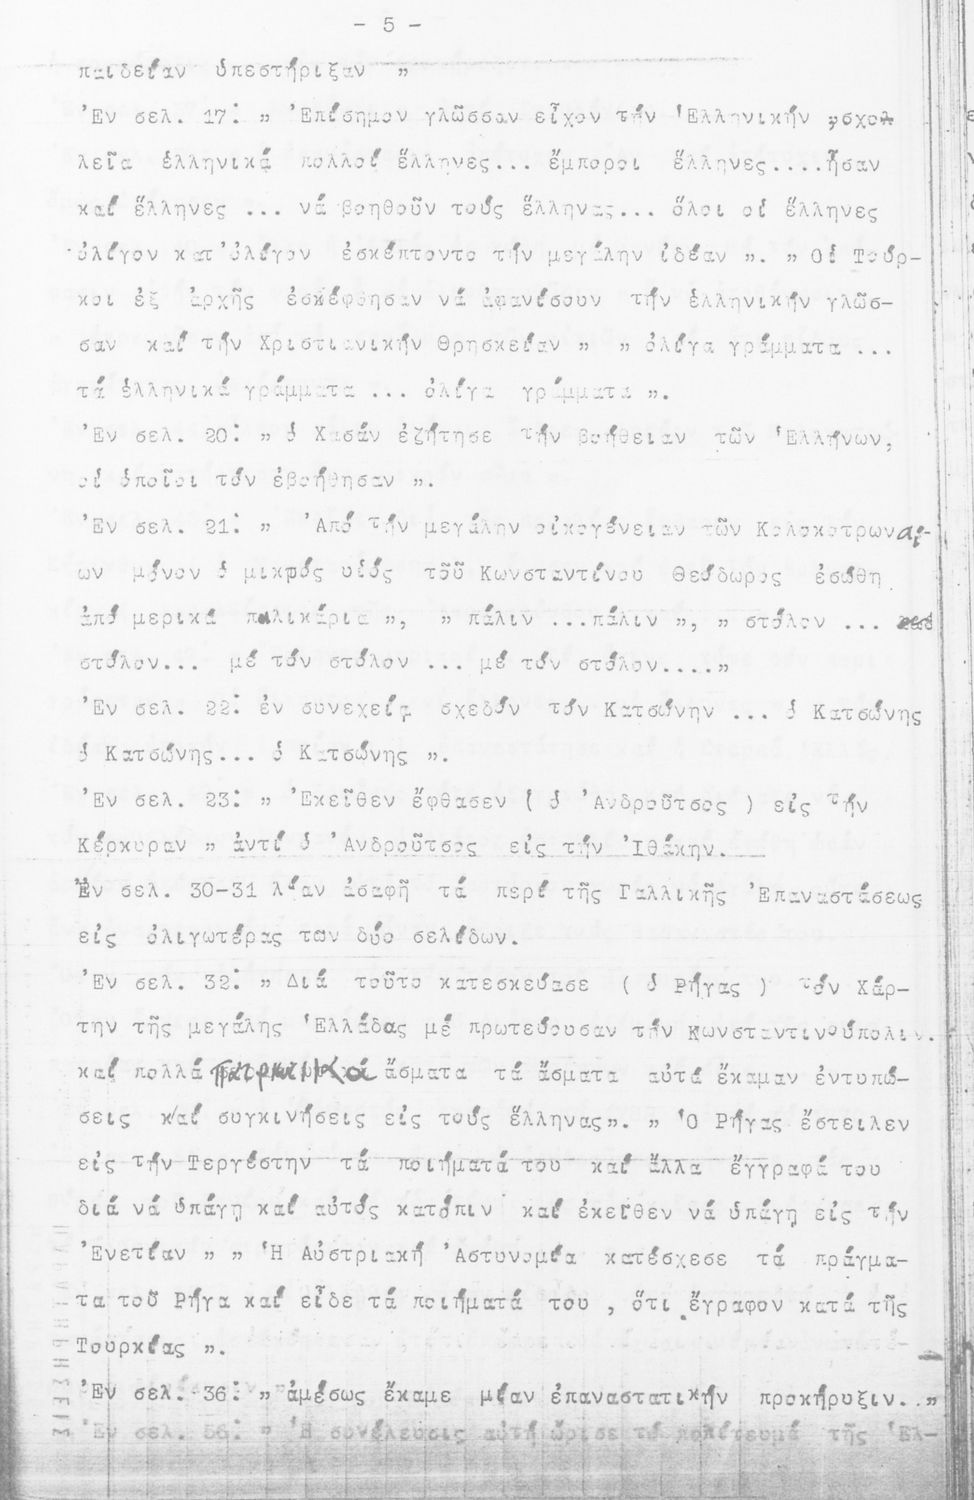 - 5 -
παιδείαν ὑπεστήριξαν "
Ἐν σελ. 17: " Ἐπίσημον γλῶσσαν εἶχον τήν Ἑλληνικήν σχο
λεῖα ἑλληνικά πολλοί ἕλληνες... ἔμποροι ἕλληνες....ἦσαν
καί ἕλληνες ... νά βοηθοῦν τούς ἕλληνας... ὅλοι οἱ ἕλληνες
ὀλίγον κατ'ὀλίγον ἐσκέπτοντο τήν μεγάλην ἰδέαν ". " Οἱ Τούρ-
κοι ἐξ ἀρχῆς ἐσκέφθησαν νά ἀφανίσουν τήν ἑλληνικήν γλῶσ-
σαν καί τήν Χριστιανικήν Θρησκείαν " " ὀλίγα γράμματα ...
τά ἑλληνικά γράμματα ... ὀλίγα γράμματα ".
Ἐν σελ. 20: " ὁ Χασάν ἐζήτησε τήν βοήθειαν τῶν Ἑλλήνων,
οἱ ὁποῖοι τόν ἐβοήθησαν ".
Ἐν σελ. 21: " Ἀπό τήν μεγάλην οἰκογένειαν τῶν Κολοκοτρωναί-
ων μόνον ὁ μικρός υἱός τοῦ Κωνσταντίνου Θεόδωρος ἐσώθη
ἀπό μερικά παλικάρια ", " πάλιν ...πάλιν ", " στόλον ...
στόλον... μέ τόν στόλον ... μέ τόν στόλον...."
Ἐν σελ. 22: ἐν συνεχείᾳ σχεδόν τόν Κατσώνην ... ὁ Κατσώνης
ὁ Κατσώνης... ὁ Κατσώνης ".
Ἐν σελ. 23: " Ἐκεῖθεν ἔφθασεν ( ὁ Ἀνδροῦτσος ) εἰς τήν
Κέρκυραν " ἀντί ὁ Ἀνδροῦτσος εἰς τήν Ἰθάκην.
Ἐν σελ. 30-31 λίαν ἀσαφῆ τά περί τῆς Γαλλικῆς Ἐπαναστάσεως
εἰς ὀλιγωτέρας των δύο σελίδων.
Ἐν σελ. 32: " Διά τοῦτο κατεσκεύασε ( ὁ Ρήγας ) τόν Χάρ-
την τῆς μεγάλης Ἑλλάδας μέ πρωτεύουσαν τήν Κωνσταντινούπολιν.
καί πολλά πατριωτικά ἄσματα τά ἄσματα αὐτά ἔκαμαν ἐντυπώ-
σεις καί συγκινήσεις εἰς τούς ἕλληνας". " Ὁ Ρήγας ἔστειλεν
εἰς τήν Τεργέστην τά ποιήματά του καί ἄλλα ἔγγραφά του
διά νά ὑπάγη καί αὐτός κατόπιν καί ἐκεῖθεν νά ὑπάγη εἰς τήν
Ἐνετίαν " " Ἡ Αὐστριακή Ἀστυνομία κατέσχεσε τά πράγμα-
τα τοῦ Ρήγα καί εἶδε τά ποιήματά του , ὅτι ἔγραφον κατά τῆς
Τουρκίας ".
Ἐν σελ. 36: " ἀμέσως ἔκαμε μίαν ἐπαναστατικήν προκήρυξιν.. "
Ἐν σελ. 56: " Ἡ συνέλευσις αὐτή ὥρισε τό πολίτευμά τῆς Ἑλ-